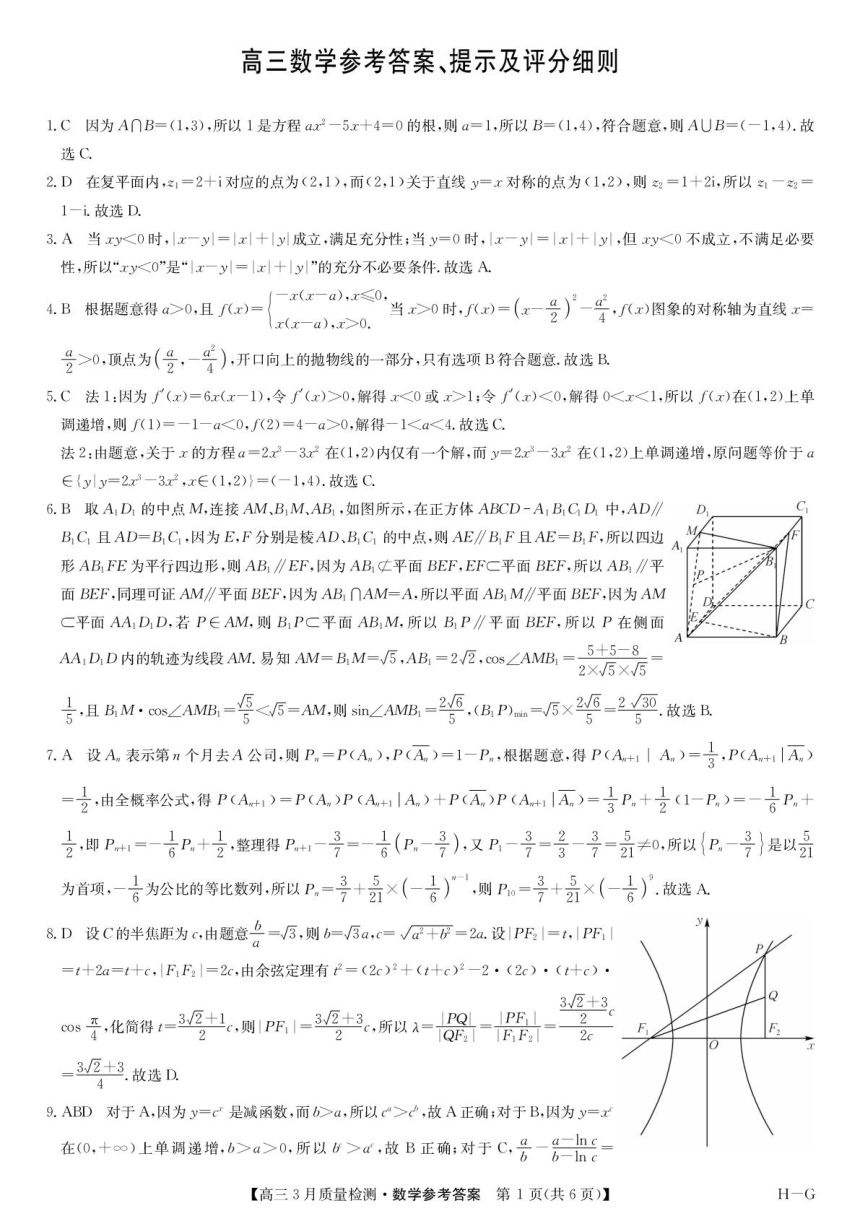 高三数学参考答案、提示及评分细则
1. C 因为 A∩B=(1,3),所以 1 是方程 ax²-5x+4=0 的根,则 a=1,所以 B=(1,4),符合题意,则 A∪B=(-1,4). 故
选 C.
2. D 在复平面内,z₁=2+i 对应的点为(2,1),而(2,1)关于直线 y=x 对称的点为(1,2),则 z₂=1+2i,所以 z₁-z₂=
1-i. 故选 D.
3. A 当 xy<0 时,|x-y|=|x|+|y|成立,满足充分性;当 y=0 时,|x-y|=|x|+|y|,但 xy<0 不成立,不满足必要
性,所以“xy<0”是“|x-y|=|x|+|y|”的充分不必要条件. 故选 A.
4. B 根据题意得 a>0,且 f(x)={-x(x-a),x≤0, x(x-a),x>0. 当 x>0 时,f(x)=(x-a/2)²-a²/4,f(x)图象的对称轴为直线 x=
a/2>0,顶点为(a/2,-a²/4),开口向上的抛物线的一部分,只有选项 B 符合题意. 故选 B.
5. C 法 1:因为 f′(x)=6x(x-1),令 f′(x)>0,解得 x<0 或 x>1;令 f′(x)<0,解得 0<x<1,所以 f(x)在(1,2)上单
调递增,则 f(1)=-1-a<0,f(2)=4-a>0,解得-1<a<4. 故选 C.
法 2:由题意,关于 x 的方程 a=2x³-3x² 在(1,2)内仅有一个解,而 y=2x³-3x² 在(1,2)上单调递增,原问题等价于 a
∈{y|y=2x³-3x²,x∈(1,2)}=(-1,4). 故选 C.
6. B 取 A₁D₁ 的中点 M,连接 AM、B₁M、AB₁,如图所示,在正方体 ABCD-A₁B₁C₁D₁ 中,AD∥
B₁C₁ 且 AD=B₁C₁,因为 E,F 分别是棱 AD、B₁C₁ 的中点,则 AE∥B₁F 且 AE=B₁F,所以四边
形 AB₁FE 为平行四边形,则 AB₁∥EF,因为 AB₁⊄平面 BEF,EF⊂平面 BEF,所以 AB₁∥平
面 BEF,同理可证 AM∥平面 BEF,因为 AB₁∩AM=A,所以平面 AB₁M∥平面 BEF,因为 AM
⊂平面 AA₁D₁D,若 P∈AM,则 B₁P⊂平面 AB₁M,所以 B₁P∥平面 BEF,所以 P 在侧面
AA₁D₁D 内的轨迹为线段 AM. 易知 AM=B₁M=√5,AB₁=2√2,cos∠AMB₁=(5+5-8)/(2×√5×√5)=
1/5,且 B₁M·cos∠AMB₁=√5/5<√5=AM,则 sin∠AMB₁=2√6/5,(B₁P)min=√5×2√6/5=2√30/5. 故选 B.
D₁ C₁ M F A₁ B₁ P D C E A B
7. A 设 Aₙ 表示第 n 个月去 A 公司,则 Pₙ=P(Aₙ),P(A̅ₙ)=1-Pₙ,根据题意,得 P(Aₙ₊₁|Aₙ)=1/3,P(Aₙ₊₁|A̅ₙ)
=1/2,由全概率公式,得 P(Aₙ₊₁)=P(Aₙ)P(Aₙ₊₁|Aₙ)+P(A̅ₙ)P(Aₙ₊₁|A̅ₙ)=1/3Pₙ+1/2(1-Pₙ)=-1/6Pₙ+
1/2,即 Pₙ₊₁=-1/6Pₙ+1/2,整理得 Pₙ₊₁-3/7=-1/6(Pₙ-3/7),又 P₁-3/7=2/3-3/7=5/21≠0,所以{Pₙ-3/7}是以5/21
为首项,-1/6为公比的等比数列,所以 Pₙ=3/7+5/21×(-1/6)ⁿ⁻¹,则 P₁₀=3/7+5/21×(-1/6)⁹. 故选 A.
8. D 设 C 的半焦距为 c,由题意 b/a=√3,则 b=√3a,c=√(a²+b²)=2a. 设|PF₂|=t,|PF₁|
=t+2a=t+c,|F₁F₂|=2c,由余弦定理有 t²=(2c)²+(t+c)²-2·(2c)·(t+c)·
cos π/4,化简得 t=(3√2+1)/2 c,则|PF₁|=(3√2+3)/2 c,所以 λ=|PQ|/|QF₂|=|PF₁|/|F₁F₂|=((3√2+3)/2 c)/(2c)
=(3√2+3)/4. 故选 D.
y P Q F₁ O F₂ x
9. ABD 对于 A,因为 y=cˣ 是减函数,而 b>a,所以 cᵃ>cᵇ,故 A 正确;对于 B,因为 y=xᶜ
在(0,+∞)上单调递增,b>a>0,所以 bᶜ>aᶜ,故 B 正确;对于 C,a/b-(a-ln c)/(b-ln c)=
【高三 3 月质量检测·数学参考答案 第 1 页(共 6 页)】
H-G